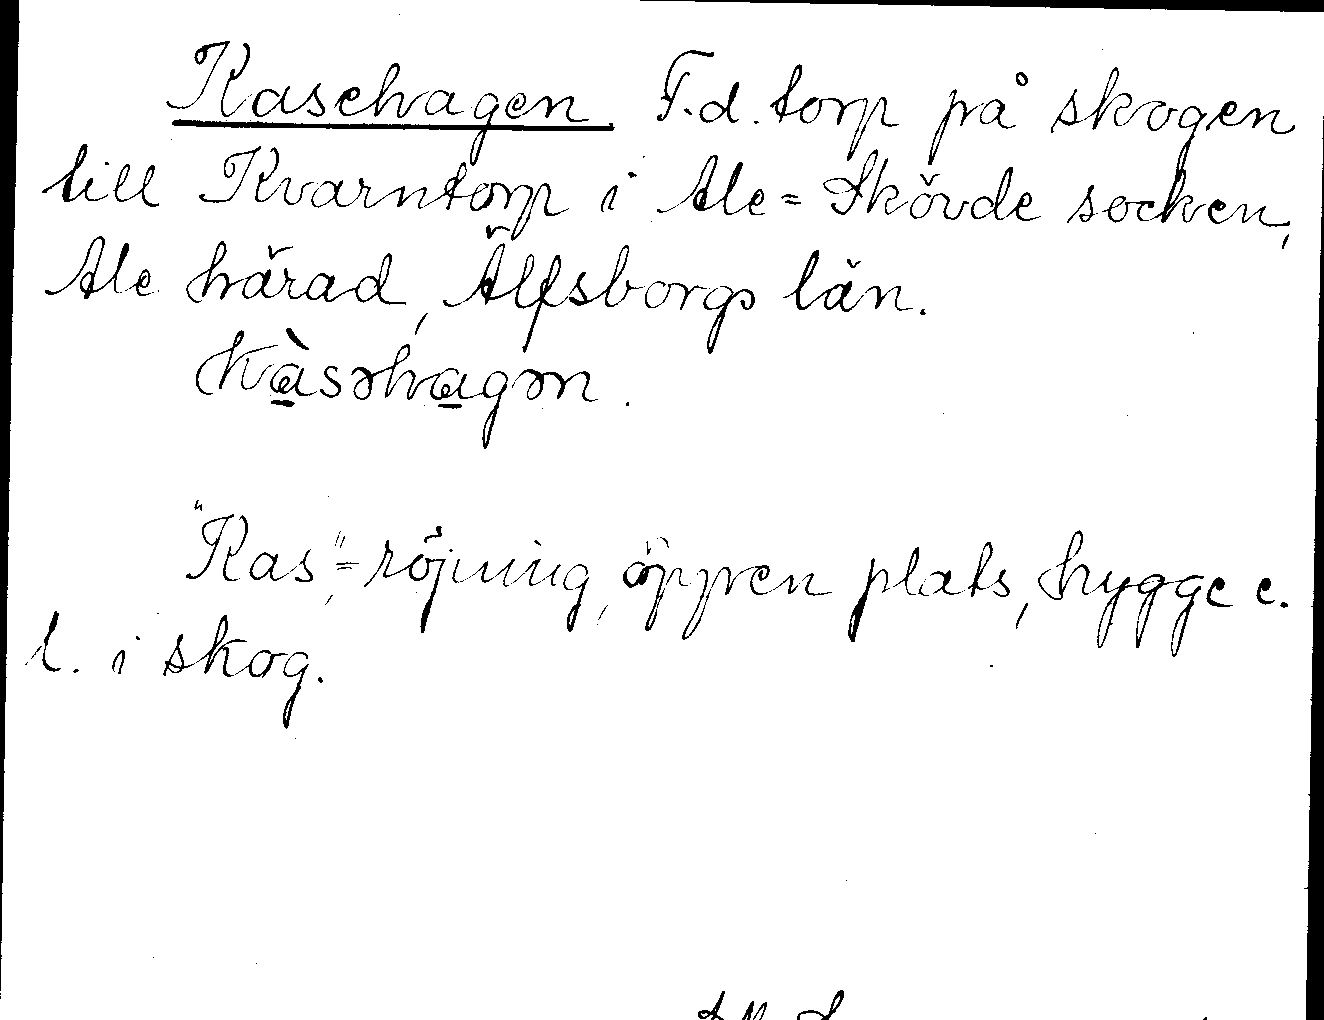 Kasehagen. F.d. torp på skogen
till Kvarntorp i Ale-Skövde socken,
Ale härad, Älfsborgs län.
Kàsəhagən.
"Kas"= röjning, öppen plats, hygge e.
l. i skog.